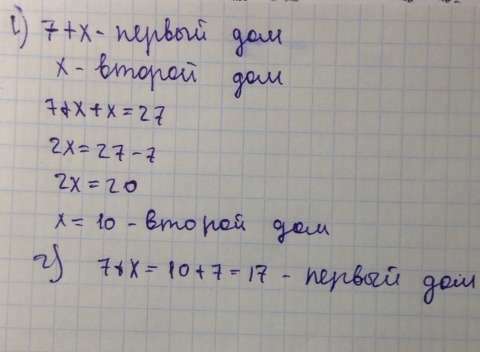 1) 7+x - первый дом
x - второй дом
7+x+x=27
2x=27-7
2x=20
x=10 - второй дом
2) 7+x=10+7=17 - первый дом